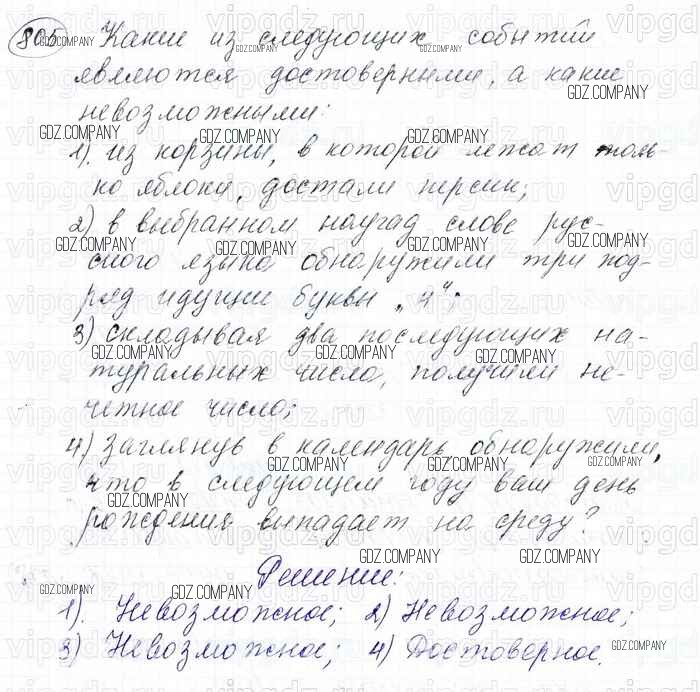 805 Какие из следующих событий
являются достоверными, а какие
невозможными:
1). из корзины, в которой лежат толь-
ко яблоки, достали персик;
2) в выбранном наугад слове рус-
ского языка обнаружили три под-
ряд идущие буквы „ч“;
3) складывая два последующих на-
туральных числа, получили не-
четное число;
4) заглянув в календарь, обнаружили,
что в следующем году ваш день
рождения выпадает на среду?
Решение:
1). Невозможное; 2) Невозможное;
3) Невозможное; 4) Достоверное.